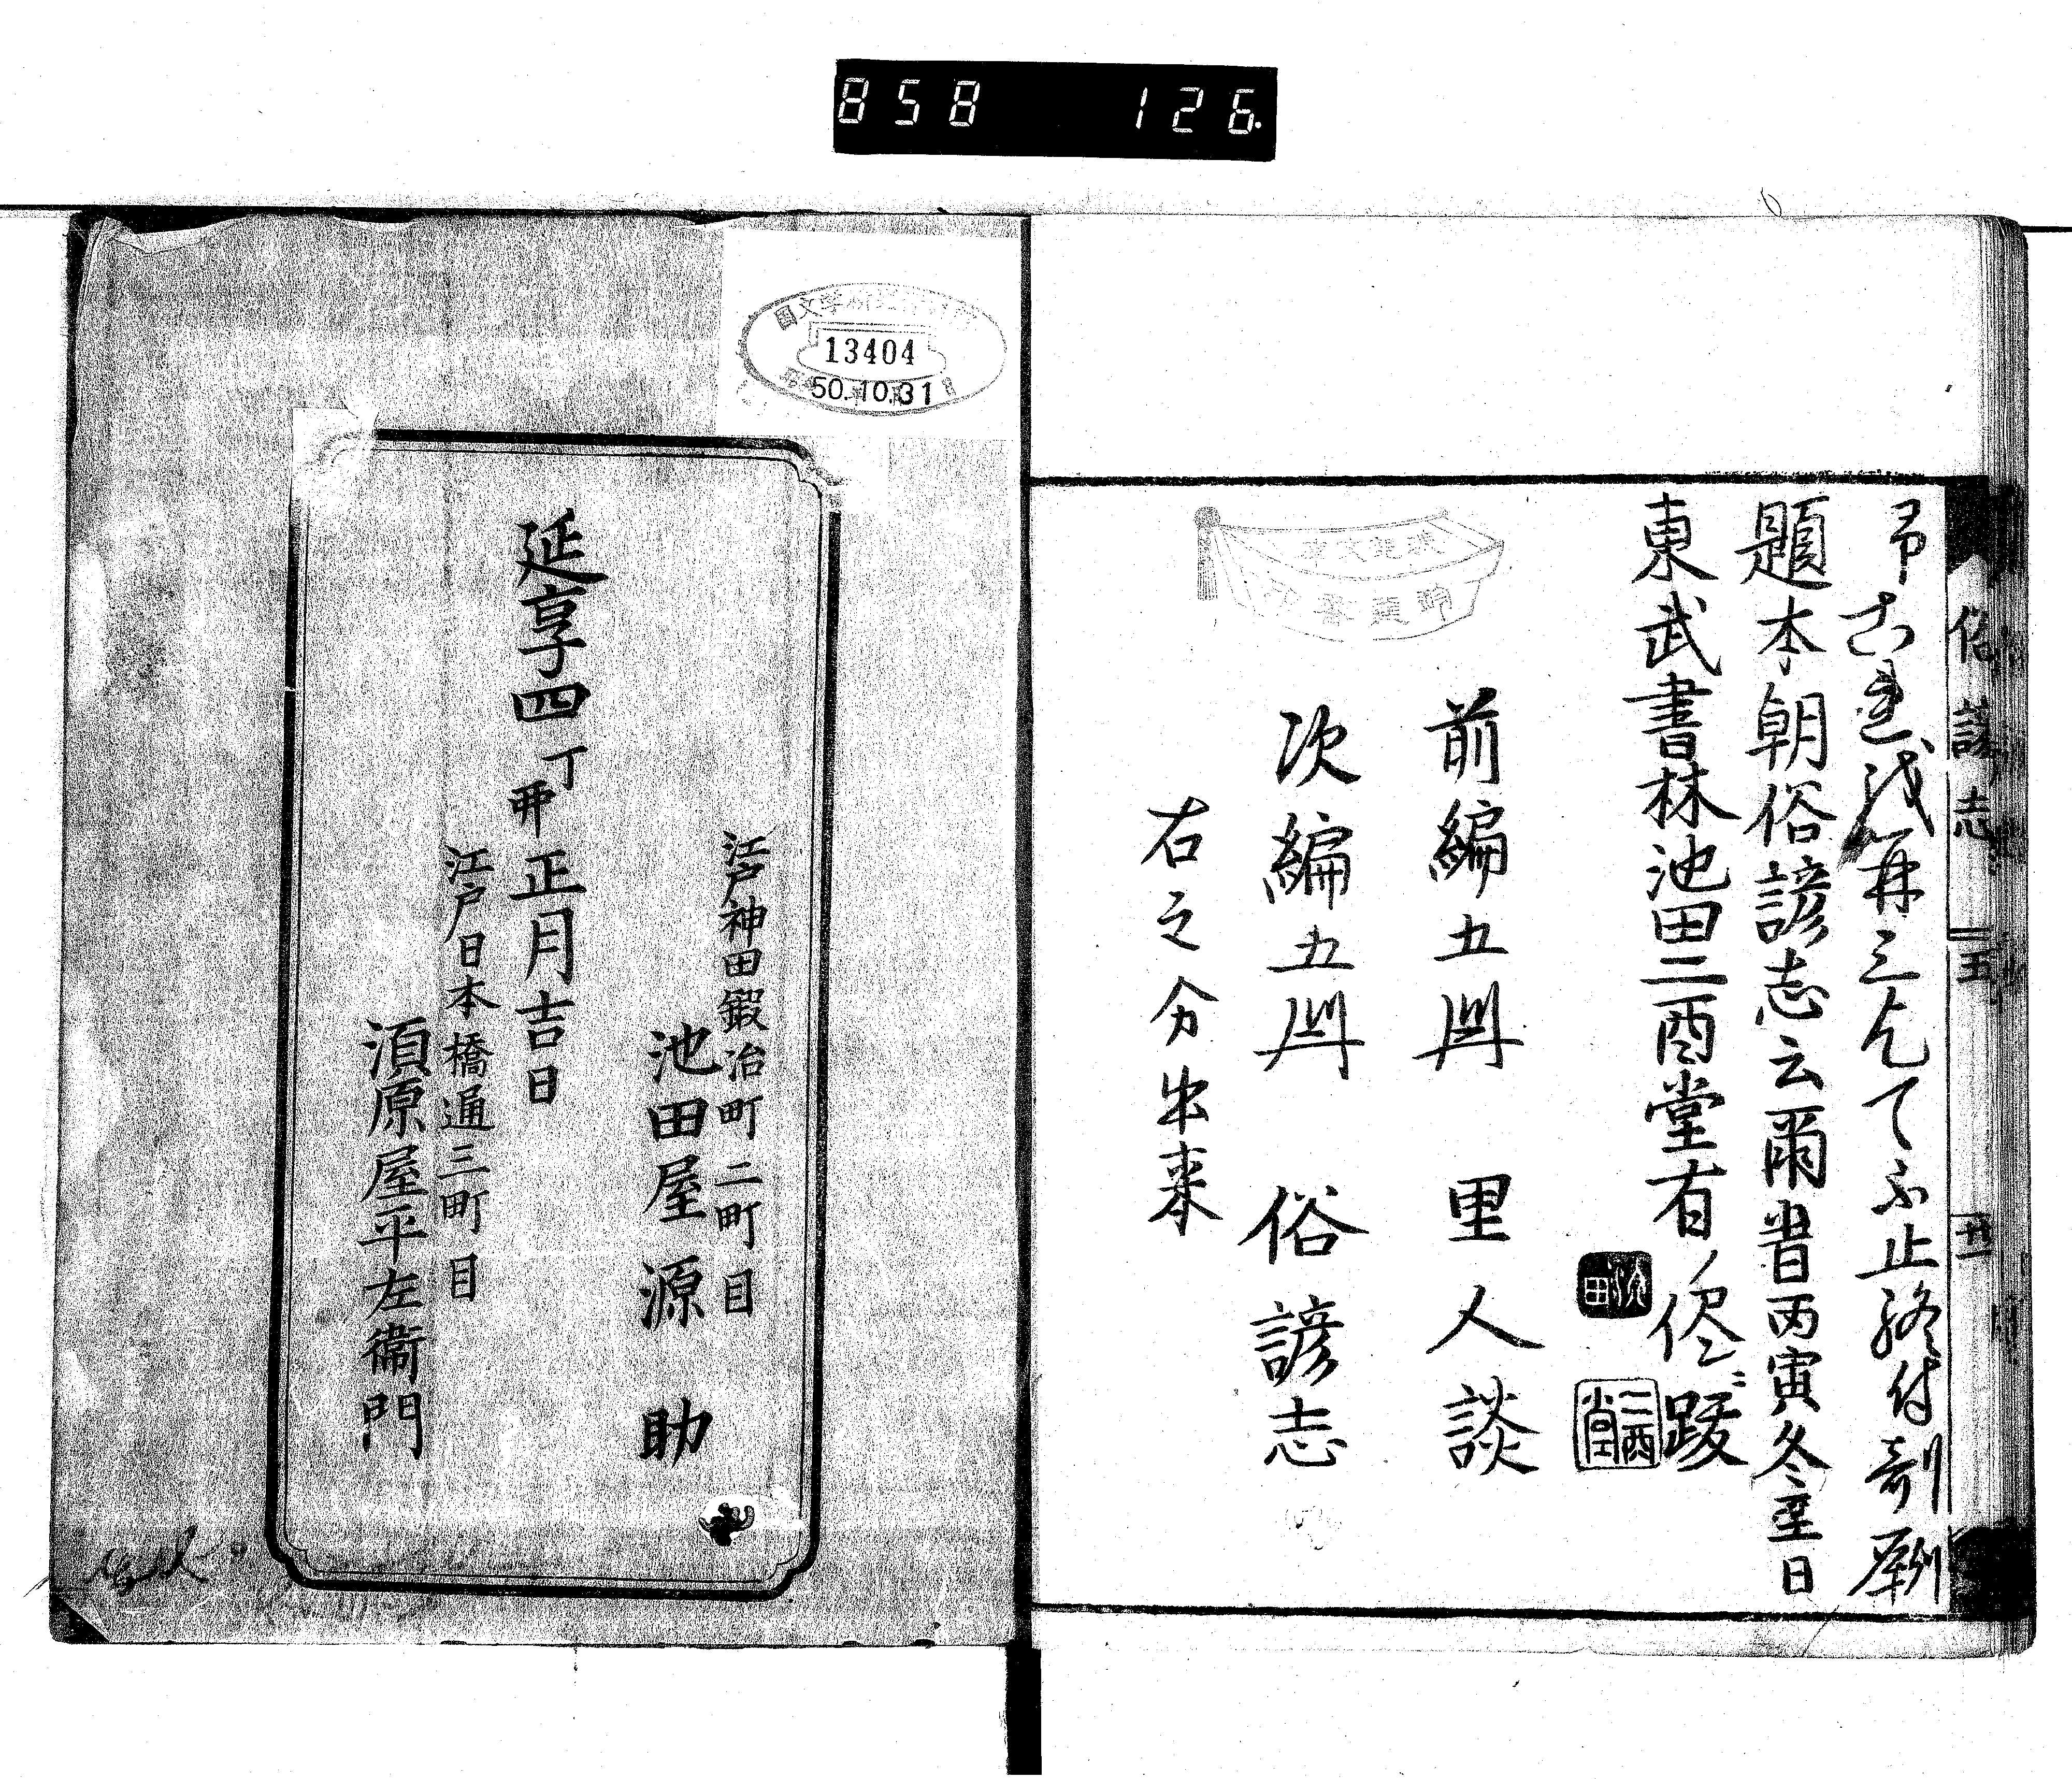 858 126
俗諺志
五
廿一
再三乞て不止終付剞劂
題本朝俗諺志云爾昔丙寅冬至日
東武書林池田二酉堂有ノ侭ニ跋
池田
二酉堂
前編五冊 里人談
次編五冊 俗諺志
右之分出来
13404
50.10.31
江戸神田鍛冶町二町目
池田屋源助
延享四丁卯正月吉日
江戸日本橋通三町目
須原屋平左衛門